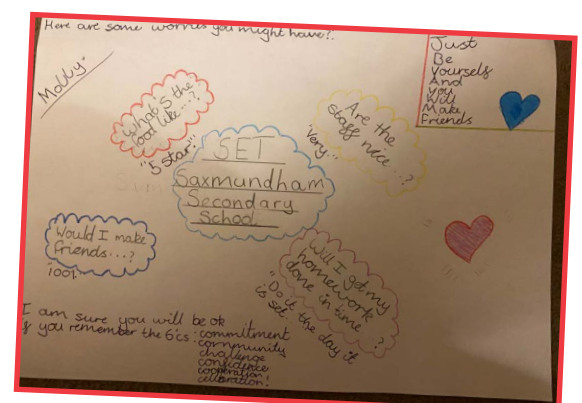 Here are some worries you might have?.
Just
Be
Yourself
And
you
Will
Make
Friends
Molly
What's the
food like...?
"5 star!"
Are the
staff nice...?
"Very...
SET
Saxmundham
Secondary
School
Would I make
friends...?
100%
Will I get my
homework
done in time..?
"Do it the day it
is set.
I am sure you will be ok
if you remember the 6'cs: commitment
community
challenge
confidence
cooperation!
celebration!